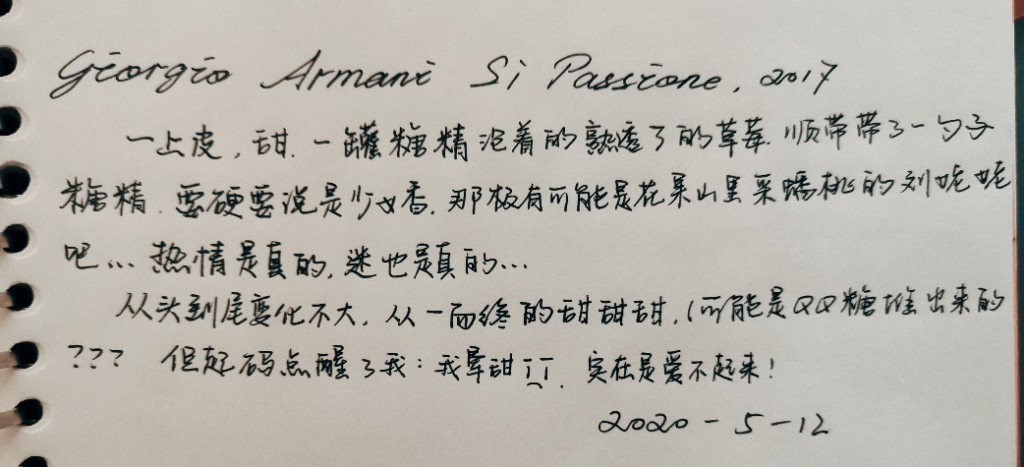 Giorgio Armani Si Passione, 2017
一上皮，甜.一罐糖精泡着的熟透了的草莓.顺带带了一勺子
糖精.要硬要说是少女香，那极有可能是花果山里采蟠桃的刘呢呢
吧...热情是真的，迷也是真的...
从头到尾变化不大，从一而终的甜甜甜，(可能是QQ糖堆出来的
??? 但起码点醒了我：我晕甜ТТ.实在是爱不起来！
2020-5-12